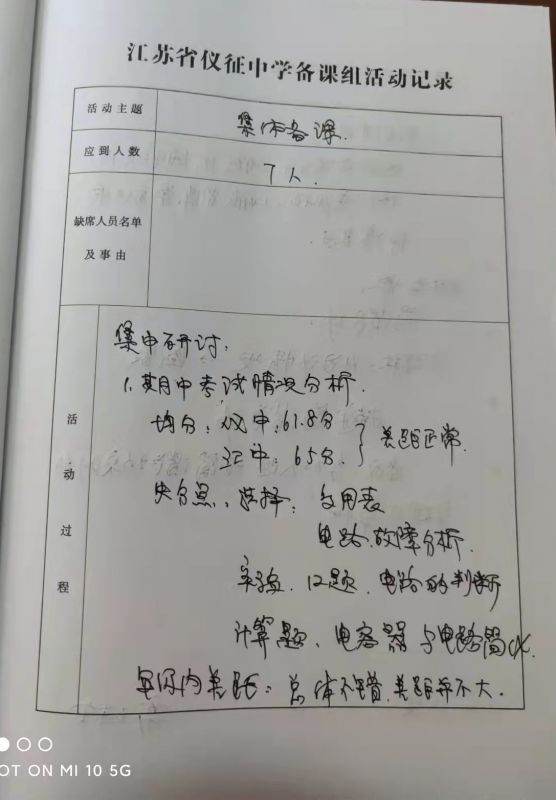 江苏省仪征中学备课组活动记录
活动主题
集体备课.
应到人数
7人.
缺席人员名单
及事由
活动过程
集中研讨:
1、期中考试情况分析.
均分: 仪中:61.8分
江中: 65分.
差距正常.
失分点、选择: 多用表
电路故障分析.
实验、12题、电路的判断
计算题、电容器与电路简化.
年级内差距: 总体不错,差距并不大.
OT ON MI 10 5G